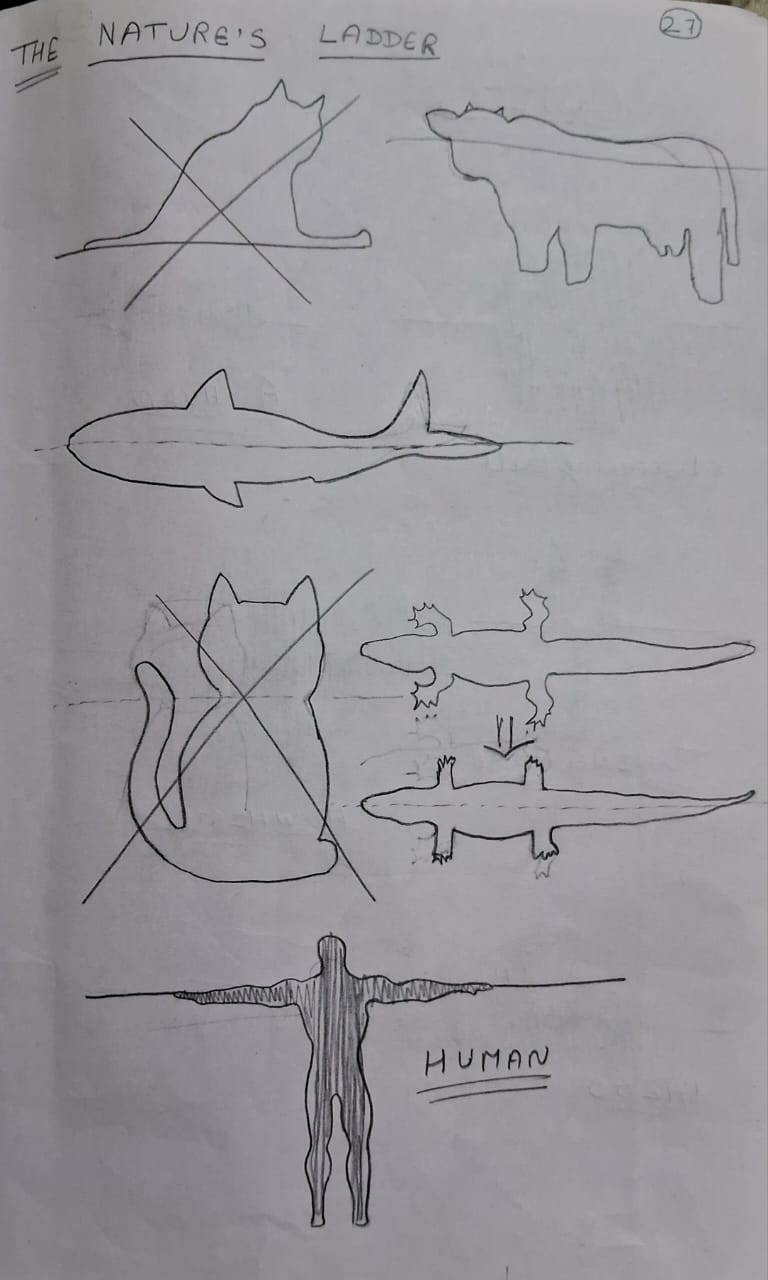 THE NATURE'S LADDER
27
HUMAN